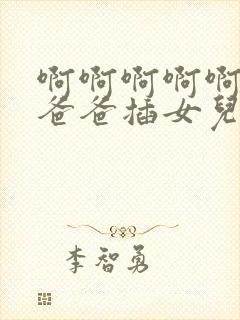 啊啊啊啊啊
爸爸插女兒
李智勇